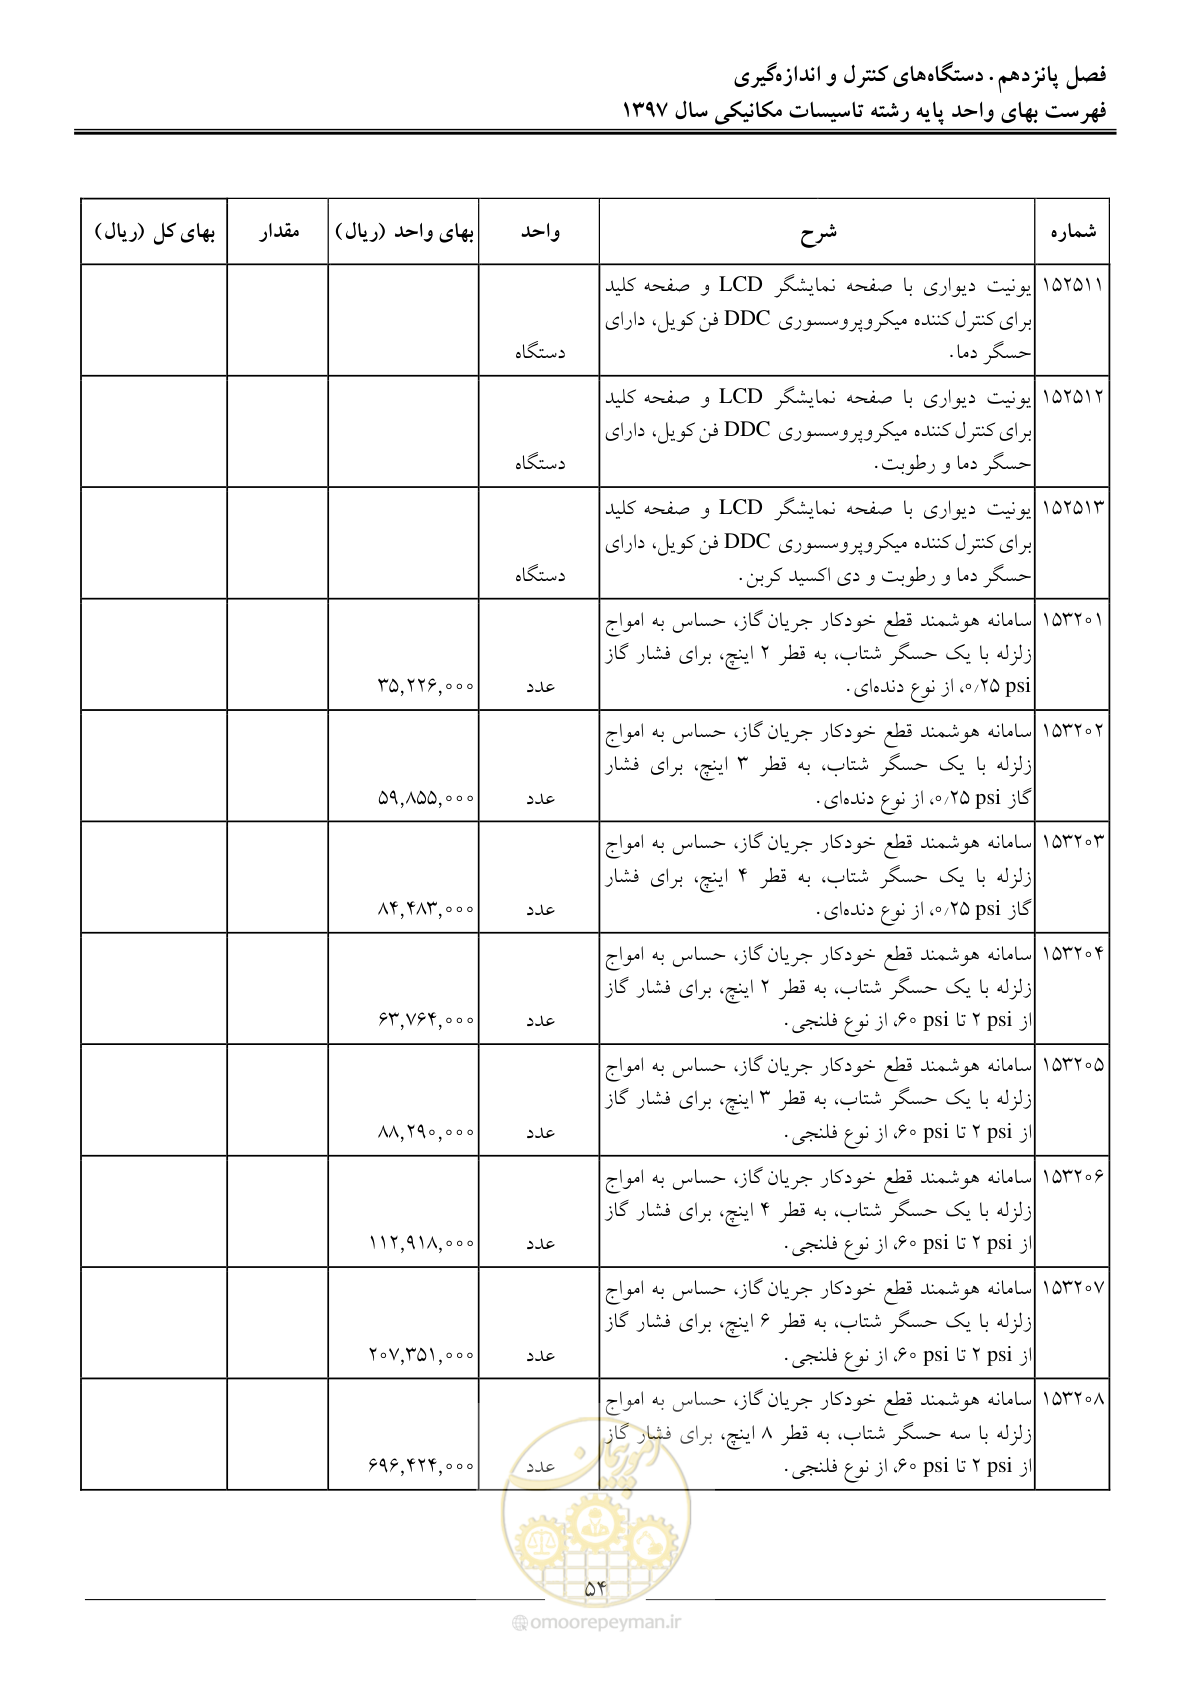 فصل پانزدهم. دستگاه‌های کنترل و اندازه‌گیری
فهرست بهای واحد پایه رشته تاسیسات مکانیکی سال ۱۳۹۷
شماره شرح واحد بهای واحد (ریال) مقدار بهای کل (ریال)
۱۵۲۵۱۱ یونیت دیواری با صفحه نمایشگر LCD و صفحه کلید
برای کنترل کننده میکروپروسسوری DDC فن کویل، دارای
حسگر دما. دستگاه
۱۵۲۵۱۲ یونیت دیواری با صفحه نمایشگر LCD و صفحه کلید
برای کنترل کننده میکروپروسسوری DDC فن کویل، دارای
حسگر دما و رطوبت. دستگاه
۱۵۲۵۱۳ یونیت دیواری با صفحه نمایشگر LCD و صفحه کلید
برای کنترل کننده میکروپروسسوری DDC فن کویل، دارای
حسگر دما و رطوبت و دی اکسید کربن. دستگاه
۱۵۳۲۰۱ سامانه هوشمند قطع خودکار جریان گاز، حساس به امواج
زلزله با یک حسگر شتاب، به قطر ۲ اینچ، برای فشار گاز
۰/۲۵ psi، از نوع دنده‌ای. عدد ۳۵,۲۲۶,۰۰۰
۱۵۳۲۰۲ سامانه هوشمند قطع خودکار جریان گاز، حساس به امواج
زلزله با یک حسگر شتاب، به قطر ۳ اینچ، برای فشار
گاز ۰/۲۵ psi، از نوع دنده‌ای. عدد ۵۹,۸۵۵,۰۰۰
۱۵۳۲۰۳ سامانه هوشمند قطع خودکار جریان گاز، حساس به امواج
زلزله با یک حسگر شتاب، به قطر ۴ اینچ، برای فشار
گاز ۰/۲۵ psi، از نوع دنده‌ای. عدد ۸۴,۴۸۳,۰۰۰
۱۵۳۲۰۴ سامانه هوشمند قطع خودکار جریان گاز، حساس به امواج
زلزله با یک حسگر شتاب، به قطر ۲ اینچ، برای فشار گاز
از ۲ psi تا ۶۰ psi، از نوع فلنجی. عدد ۶۳,۷۶۴,۰۰۰
۱۵۳۲۰۵ سامانه هوشمند قطع خودکار جریان گاز، حساس به امواج
زلزله با یک حسگر شتاب، به قطر ۳ اینچ، برای فشار گاز
از ۲ psi تا ۶۰ psi، از نوع فلنجی. عدد ۸۸,۲۹۰,۰۰۰
۱۵۳۲۰۶ سامانه هوشمند قطع خودکار جریان گاز، حساس به امواج
زلزله با یک حسگر شتاب، به قطر ۴ اینچ، برای فشار گاز
از ۲ psi تا ۶۰ psi، از نوع فلنجی. عدد ۱۱۲,۹۱۸,۰۰۰
۱۵۳۲۰۷ سامانه هوشمند قطع خودکار جریان گاز، حساس به امواج
زلزله با یک حسگر شتاب، به قطر ۶ اینچ، برای فشار گاز
از ۲ psi تا ۶۰ psi، از نوع فلنجی. عدد ۲۰۷,۳۵۱,۰۰۰
۱۵۳۲۰۸ سامانه هوشمند قطع خودکار جریان گاز، حساس به امواج
زلزله با سه حسگر شتاب، به قطر ۸ اینچ، برای فشار گاز
از ۲ psi تا ۶۰ psi، از نوع فلنجی. عدد ۶۹۶,۴۲۴,۰۰۰
امور پیمان
۵۴
omoorepeyman.ir